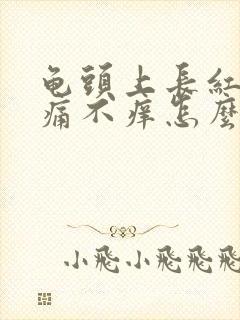 龟頭上長紅
痛不痒怎麼
小飛小飛飛飛